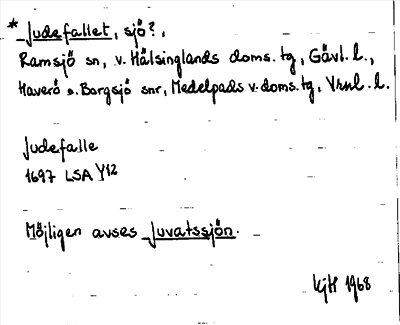 * Judefallet, sjö?,
Ramsjö sn, v. Hälsinglands doms. tg, Gävl. l.,
Haverö o. Borgsjö snr, Medelpads v. doms. tg, Vrnl. l.
Judefalle
1697 LSA Y12
Möjligen avses Juvatssjön.
KjH 1968